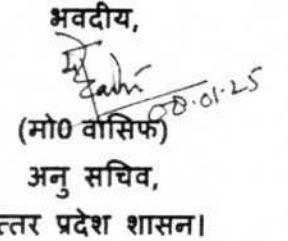 भवदीय,
08.01.25
(मो0 वासिफ)
अनु सचिव,
त्तर प्रदेश शासन।